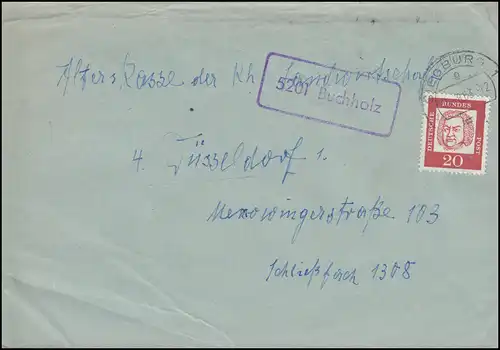 Alterskasse der Rh. Landwirtschaft
5201 Buchholz
DEUTSCHE BUNDES POST
20
4. Düsseldorf 1.
Merowingerstraße 103
Schließfach 1308